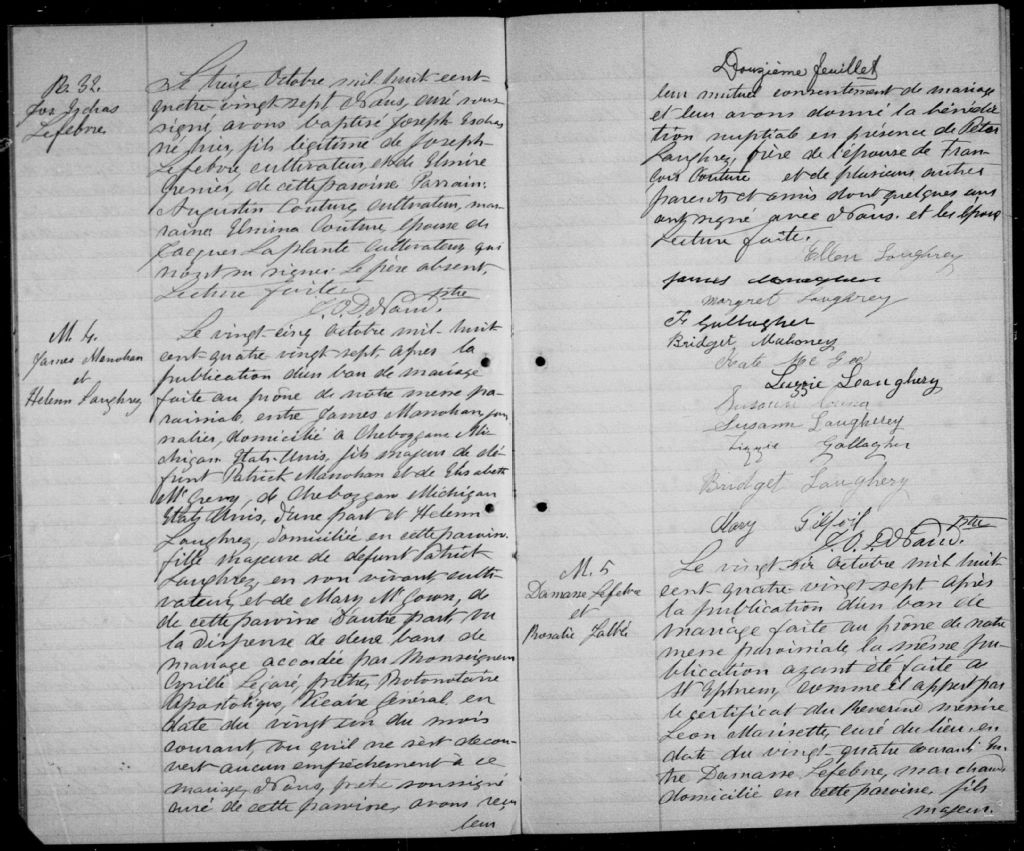 B. 32.
Jos. Esdras
Lefebvre
Le treize Octobre mil huit cent
quatre vingt sept Nous, curé sous
signé, avons baptisé Joseph Esdras
né hier, fils légitime de Joseph
Lefebvre, cultivateur, et de Elmire
Grenier, de cette paroisse Parrain:
Augustin Couture, cultivateur, mar-
raine: Elmina Couture, épouse de
Jacques Laplante cultivateur, qui
n'ont su signer. Le père absent.
Lecture faite.
J. O. D. Naud. Ptre
M. 4.
James Monohan
et
Helenn Laughrey
Le vingt-cinq octobre mil huit
cent-quatre vingt-sept, après la
publication d'un ban de mariage
faite au prône de notre messe pa-
roissiale, entre James Monohan jour
nalier, domicilié à Cheboggan, Mi-
chigan Etats-Unis, fils majeur de dé-
funt Patrick Monohan et de Elisabeth
Mc Grevy, de Cheboggan Michigan
Etats Unis, d'une part et Helenn
Laughrey, domiciliée en cette paroisse.
fille majeure de défunt Patrick
Laughrey, en son vivant culti-
vateur, et de Mary Mc Gown, de
de cette paroisse D'autre part, vu
la dispense de deux bans de
mariage accordée par Monseigneur
Cyrille Legaré, prêtre, Protonotaire
Apostolique, Vicaire Général en
date du vingt un du mois
courant, vu qu'il ne s'est decou-
vert aucun empêchement à ce
mariage, Nous, prêtre soussigné
curé de cette paroisse, avons reçu
leur
Douzième feuillet
leur mutuel consentement de mariage
et leur avons donné la bénédic
tion nuptiale en présence de Peter
Laughrey, frère de l'épouse de Fran
çois Couture et de plusieurs autres
parents et amis dont quelques uns
ont signé avec Nous. et les époux
Lecture faite.
Ellen Loughrey
James Monaghan
Margret Loughrey
F Gallagher
Bridget Mahoney
Kate Mc Goo
Luzzie Loaughery
Susann
Susann Laugherey
Lizzie Gallagher
Bridget Laughery
Mary Gilfoil
J. O. D. Naud. Ptre
M. 5
Damasse Lefebvre
et
Rosalie Jalbée
Le vingt-six octobre mil huit
cent quatre vingt sept après
la publication d'un ban de
mariage faite au prône de notre
messe paroissiale la même pu-
blication ayant été faite à
St Ephrem, comme il appert par
le certificat du Reverend messire
Léon Marisette, curé du lieu en
date du vingt-quatre courant. En-
tre Damasse Lefebvre, marchand
domicilié en cette paroisse, fils
majeur.